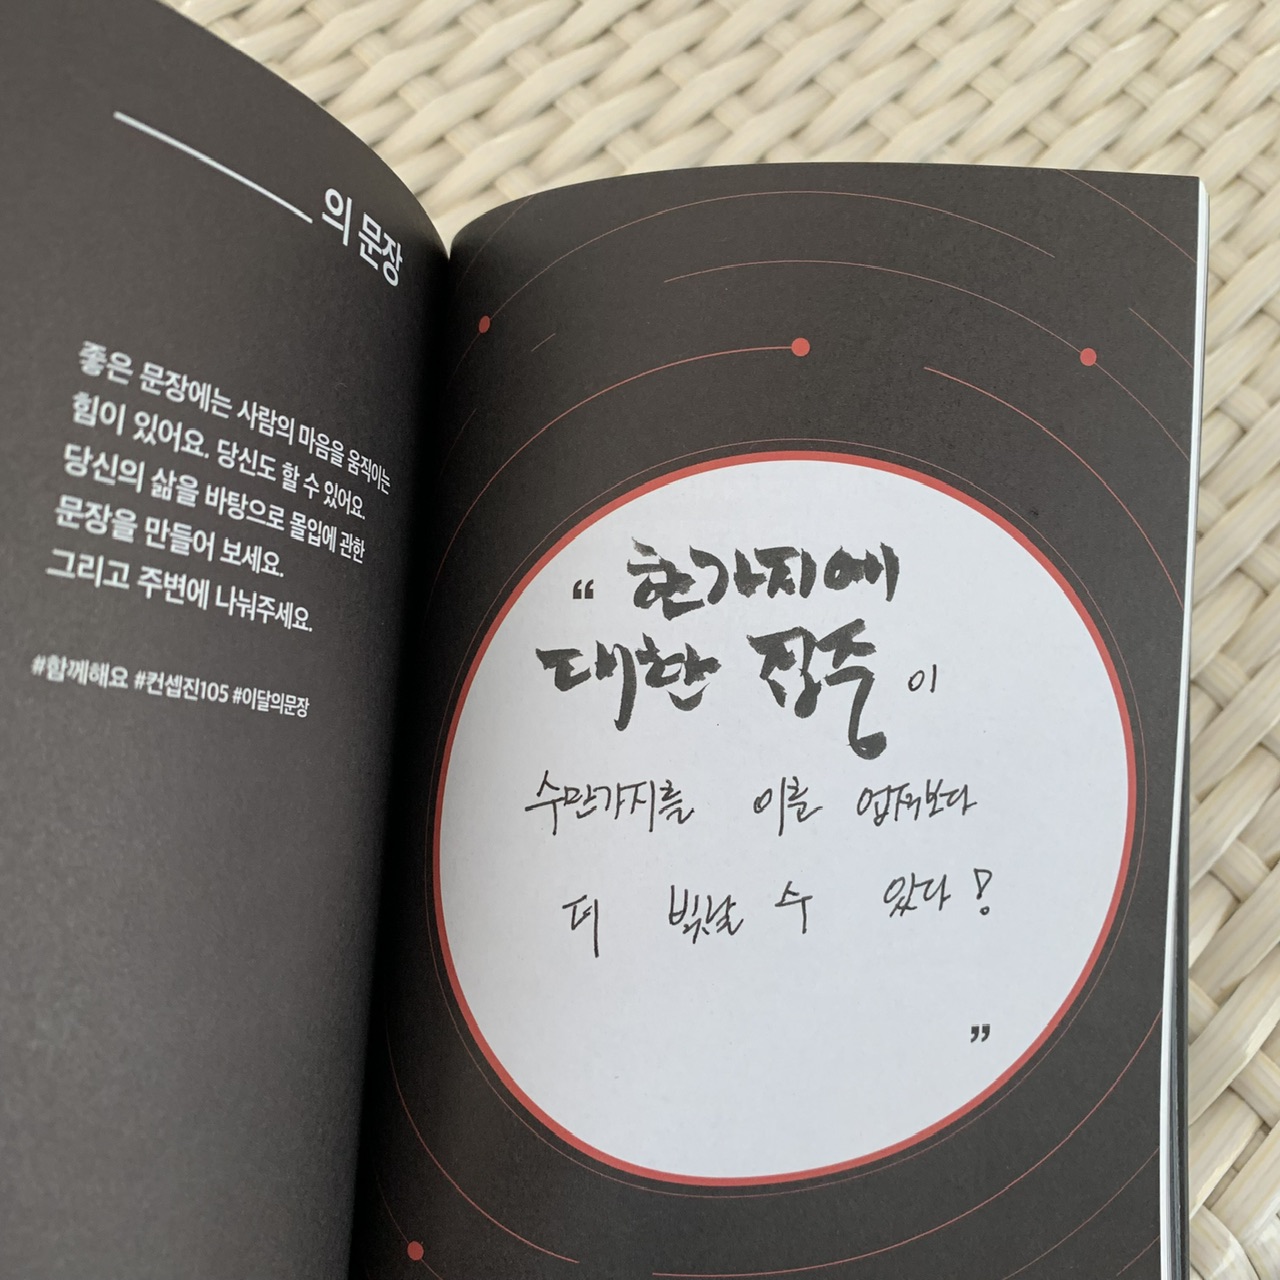 의 문장
좋은 문장에는 사람의 마음을 움직이는
힘이 있어요. 당신도 할 수 있어요.
당신의 삶을 바탕으로 몰입에 관한
문장을 만들어 보세요.
그리고 주변에 나눠주세요.
#함께해요 #컨셉진105 #이달의문장
“ 한가지에
대한 집중이
수만가지를 이룬 업적보다
더 빛날 수 있다!
”